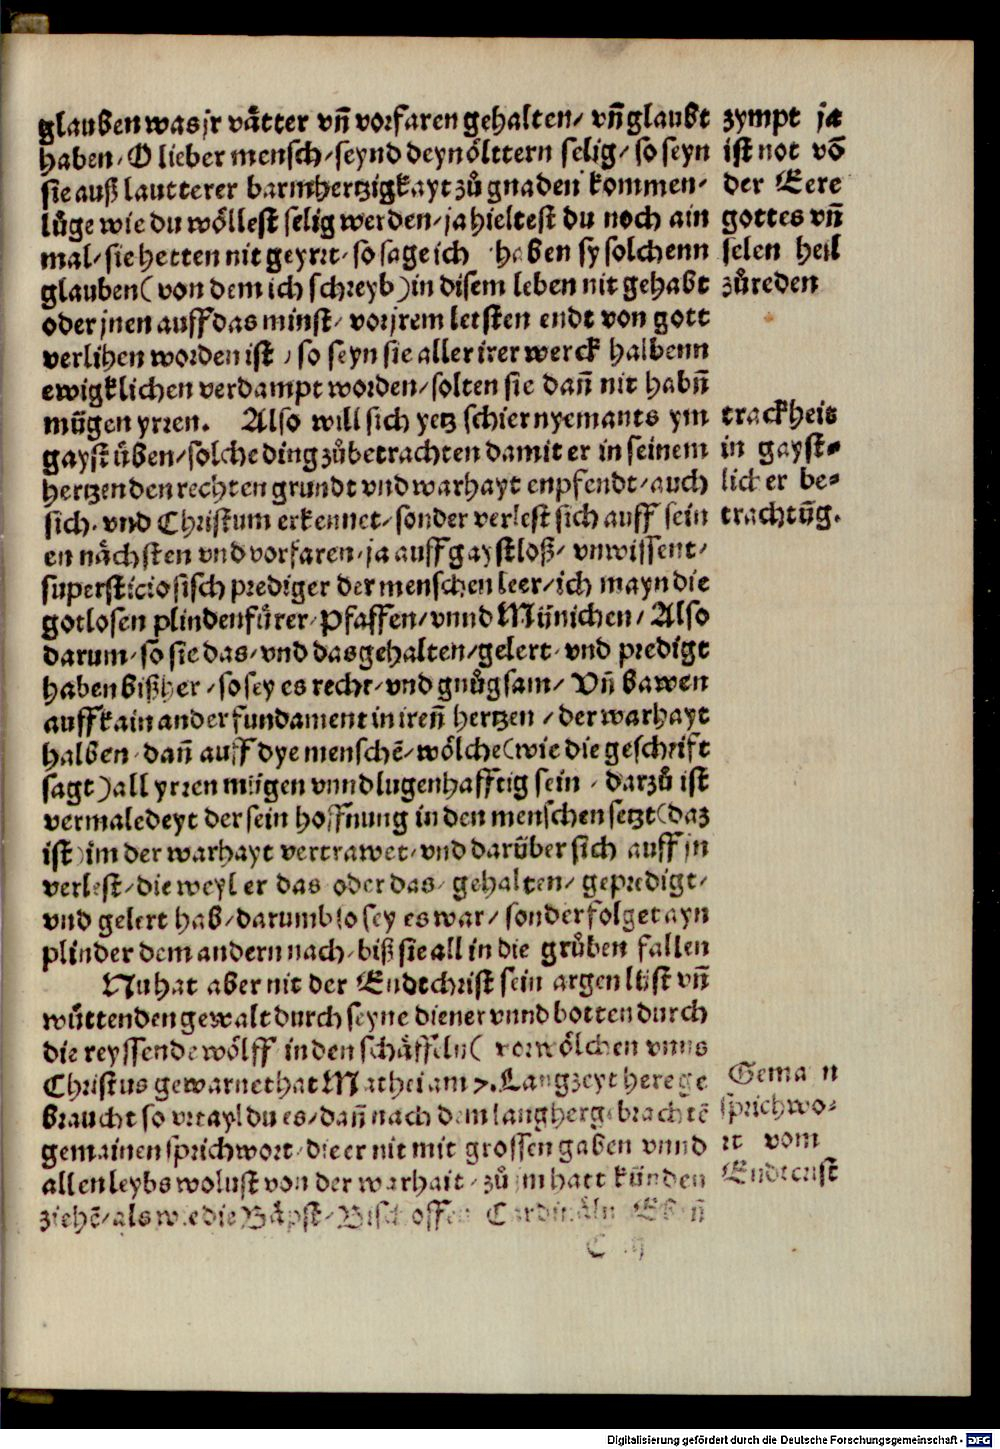 glauben was jr vätter vñ vorfaren gehalten/ vñ glaubt
haben/ O lieber mensch/ seynd deyn ölttern selig/ so seyn
sie auß lautterer barmhertzigkayt zů gnaden kommen/
lůge wie du wöllest selig werden/ ja hieltest du noch ain
mal/ sie hetten nit geyrrt/ so sage ich haben sy solchenn
glauben (von dem ich schreyb) in disem leben nit gehabt
oder jnen auff das minst/ vor jrem letsten endt von gott
verlihen worden ist / so seyn sie aller irer werck halbenn
ewigklichen verdampt worden/ solten sie dañ nit habñ
mügen yrren. Also will sich yetz schier nyemants ym
gayst üben/ solche ding zůbetrachten damit er in seinem
hertzen den rechten grundt vnd warhayt enpfendt/ auch
sich/ vnd Christum erkennet/ sonder verlest sich auff sein
en nächsten vnd vorfaren/ ja auff gaystloß/ vnwissent/
supersticiosisch prediger der menschen leer/ ich mayn die
gotlosen plindenfürer/ Pfaffen/ vnnd Münichen/ Also
darum/ so sie das/ vnd das gehalten/ gelert/ vnd predigt
haben bißher / so sey es recht/ vnd gnůgsam/ Vñ bawen
auff kain ander fundament in ireñ hertzen / der warhayt
halben/ dañ auff dye menschē/ wölche (wie die geschrift
sagt) all yrren mügen vnnd lugenhafftig sein / darzů ist
vermaledeyt der sein hoffnung in den menschen setzt (daz
ist) im der warhayt vertrawet/ vnd darüber sich auff jn
verlest/ die weyl er das oder das/ gehalten/ gepredigt/
vnd gelert hab/ darumb so sey es war/ sonder folget ayn
plinder dem andern nach/ biß sie all in die grůben fallen
Nu hat aber nit der Endtchrist sein argen lüst vñ
wüttenden gewalt durch seyne diener vnnd botten durch
die reyssende wölff in den schäffeln ( vor wölchen vnns
Christus gewarnet hat Mathei am 7. Langzeyt here ge
braucht so vrtayl du es/ dañ nach dem lang hergebrachtē
gemainen sprichwort/ die er nit mit grossen gaben vnnd
allen leybs wolust von der warhait/ zů jm hatt künden
ziehē/ als wie die Bäpst/ Bischoffen Cardinäln
zympt ja
ist not vō
der Eere
gottes vñ
selen heyl
zůreden
trackheit
in gayst=
licher be=
trachtũg.
Gemain
sprichwo=
rt vom
Endtcrist
Digitalisierung gefördert durch die Deutsche Forschungsgemeinschaft - DFG